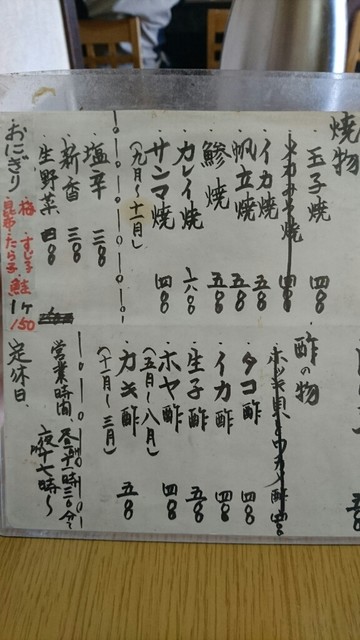 焼物
・玉子焼 四〇〇
・イカ焼 五〇〇
・帆立焼 五〇〇
・鯵焼 五〇〇
・カレイ焼 六〇〇
・サンマ焼 四〇〇
(九月〜十一月)
・塩辛 三〇〇
・新香 三〇〇
・生野菜 四〇〇
おにぎり 梅 すじ子 鮭
昆布・たら子 1ケ 150
・酢の物
・タコ酢 四〇〇
・イカ酢 四〇〇
・生子酢 五〇〇
・ホヤ酢 四〇〇
(五月〜八月)
・カキ酢 五〇〇
(十一月〜三月)
営業時間
夜
定休日